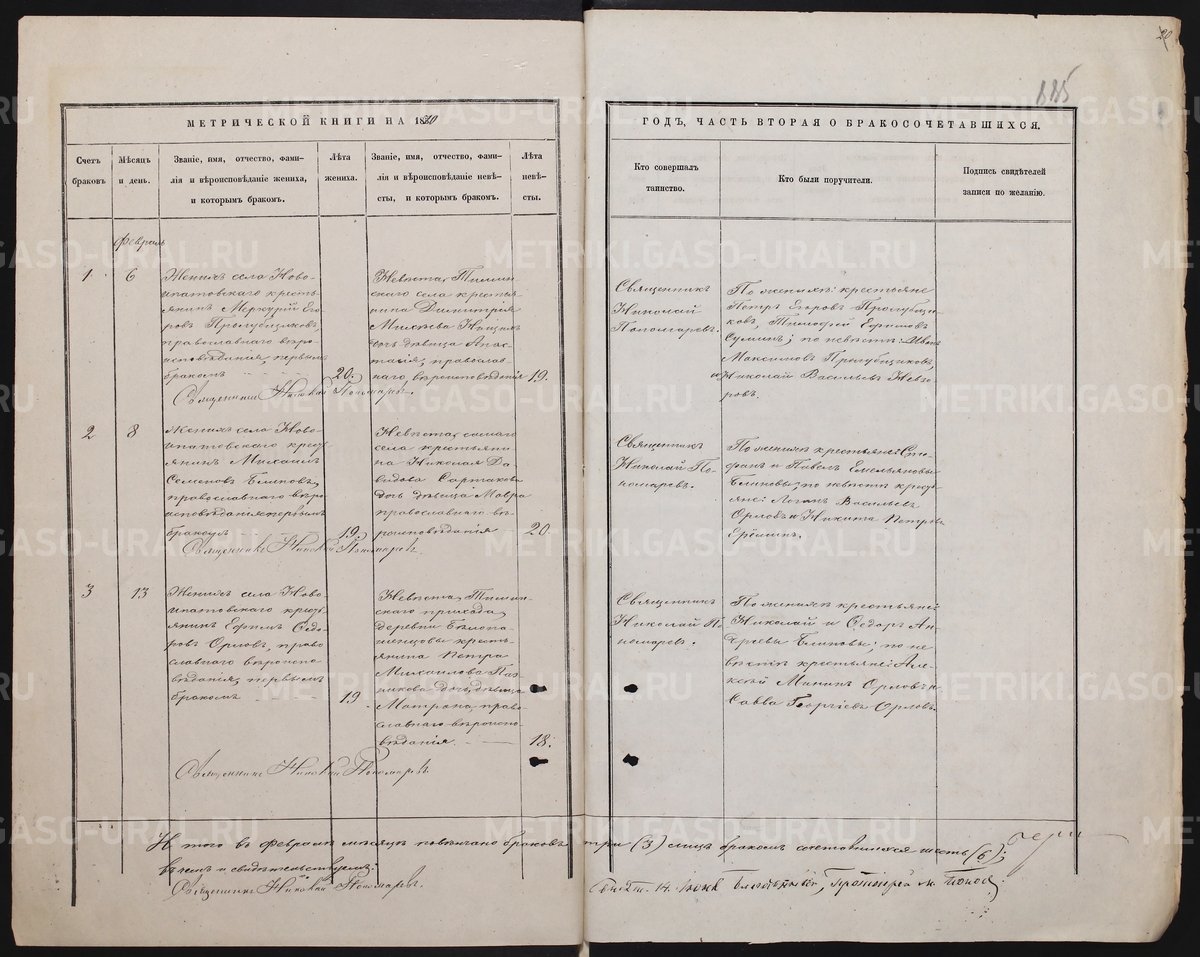 20
885
МЕТРИЧЕСКОЙ КНИГИ НА 1880
ГОДЪ, ЧАСТЬ ВТОРАЯ О БРАКОСОЧЕТАВШИХСЯ.
Счетъ браковъ
Мѣсяцъ и день.
Званіе, имя, отчество, фами-
лія и вѣроисповѣданіе жениха,
и которымъ бракомъ.
Лѣта
жениха.
Званіе, имя, отчество, фами-
лія и вѣроисповѣданіе невѣ-
сты, и которымъ бракомъ.
Лѣта
невѣ-
сты.
Кто совершалъ
таинство.
Кто были поручители.
Подпись свидѣтелей
записи по желанію.
Февраль
1
6
Женихъ села Ново-
ипатовскаго кресть-
янинъ Меркурій Его
ровъ Пролубщиковъ,
православнаго вѣро-
исповѣданія, первымъ
бракомъ
20.
Невѣста, Тимин
скаго села крестья-
нина Димитрія
дочь дѣвица Анас-
тасія, православ-
наго вѣроисповѣданія
19.
Священникъ Николай Пономаревъ.
Священникъ
Николай
Пономаревъ.
По женихѣ: крестьяне
Петръ Егоровъ Пролубщи-
ковъ, Тимофей Ефимовъ
Суминъ; по невѣстѣ: Иванъ
Максимовъ Пролубщиковъ,
и Николай Васильевъ Невзо
ровъ.
2
8
Женихъ села Ново-
ипатовскаго кресть
янинъ Михаилъ
Семеновъ Блиновъ,
православнаго вѣро
исповѣданія, первымъ
бракомъ
19.
Невѣста, самаго
села крестьяни
на Николая Да
видова Сартакова
дочь дѣвица Мавра
православнаго вѣ-
роисповѣданія
20.
Священникъ Николай Пономаревъ.
Священникъ
Николай По
номаревъ.
По женихѣ крестьяне: Сте
фанъ и Павелъ Емельяновы
Блиновы; по невѣстѣ кресть
яне: Логинъ Васильевъ
Орловъ и Никита Петровъ
Ереминъ.
3
13
Женихъ села Ново-
ипатовскаго кресть
янинъ Ефимъ Ѳедо
ровъ Орловъ, право
славнаго вѣроиспо-
вѣданія, первымъ
бракомъ
19.
Невѣста, Тимин-
скаго прихода,
деревни
крестъ-
янина Петра
Михайлова
дочь, дѣвица
Матрона, право-
славнаго вѣроиспо-
вѣданія.
18.
Священникъ Николай Пономаревъ
Священникъ
Николай По
номаревъ.
По женихѣ крестьяне:
Николай и Ѳедоръ Ан-
дреевы Блиновы; по не
вѣстѣ крестьяне: Але
ксѣй Мининъ Орловъ и
Савва Георгіевъ Орловъ.
И того въ Февралѣ мѣсяцѣ повѣнчано браковъ три (3) лицъ бракомъ сочетавшихся шесть (6);
въ чемъ и свидѣтельствуемъ:
Священникъ Николай Пономаревъ.
METRIKI.GASO-URAL.RU